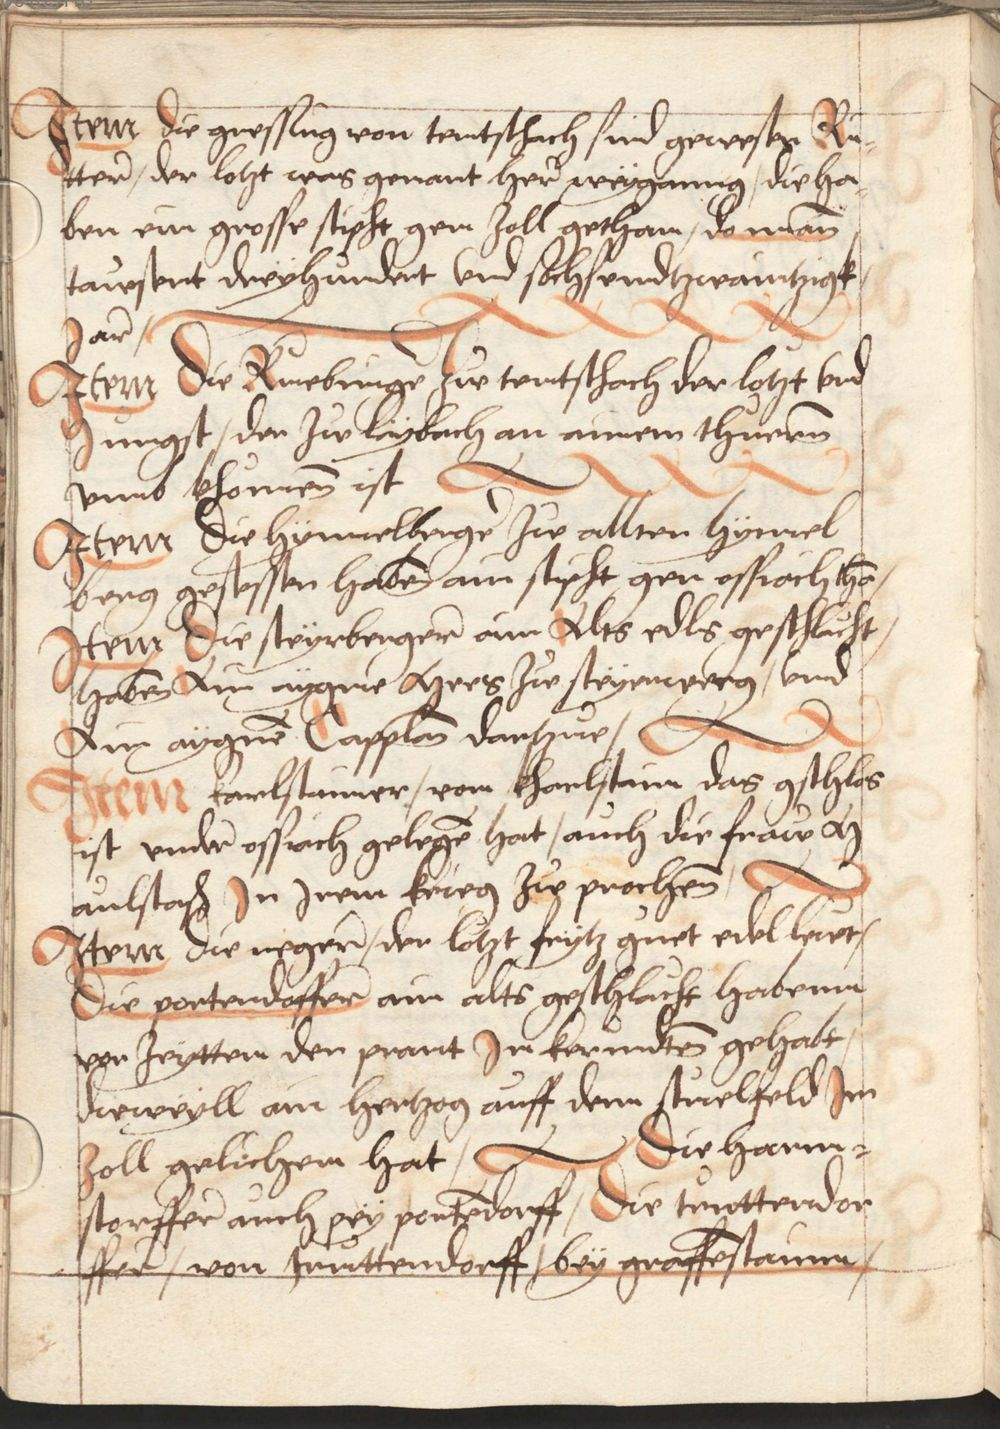 Item die gressing von tentschach sind gewesen Ri-
tter / der letzt was genant her weyganng / die ha-
ben ein grosse stifft gem Zoll gethan / do man
tausent dreyhundert vnd sechsundtzwaintzigk /
Jar /
Item Die Ruebinger Zue tentschach der letzt vnd
Jungst / den Zue laybach an ainem thuernn
vmb khomen ist
Item die hymmelberger Zue allten hymel
berg gesessen haben ain stifft gen ossiach than /
Item Die steyrberger ain Alts edls geschlacht /
haben Ain aygne Mess Zue steyerberg / vnd
Ain aygnen Capplan dartzue /
Item karlstainer / vom kharlstain das gschlos
ist vnder ossiach gelegen hat / auch die fraw M
aultasch In Irem krieg Zue prochen /
Item die neger / der letzt frytz guet edel leut /
Die portendorffer ain alts geschlacht habenn
vor Zeyttem den prant In kernndten gehabt /
dieweyll ain Hertzog auff dem stuelfeld Im
Zoll gelichem hat / Die harm-
storffer auch pey portendorff / Die truttendor
ffer / von truttendorff / bey graffestainn /